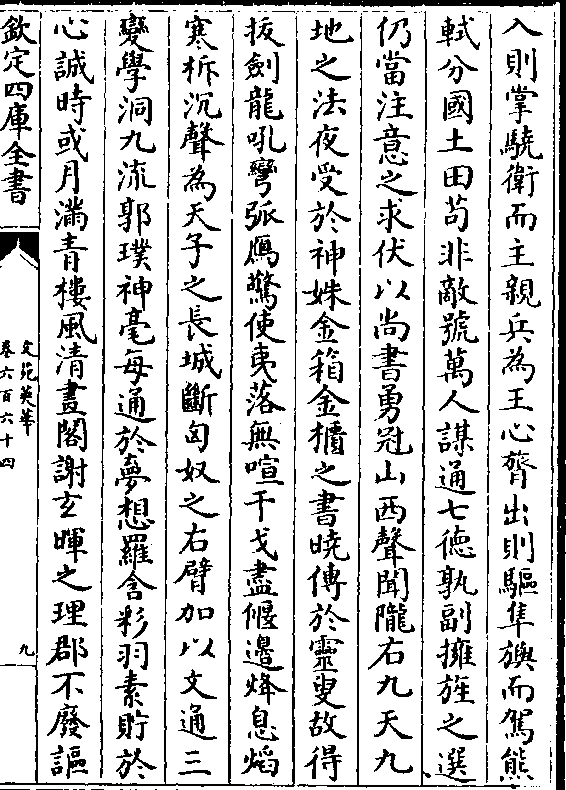 入則掌驍衛而主親兵為王心膂出則驅隼旟而駕熊
軾分國土田苟非敵號萬人謀通七德孰副擁旌之選
仍當注意之求伏以尚書勇冠山西聲聞隴右九天九
地之法夜受於神姝金箱金櫃之書曉傳於靈叟故得
拔劍龍吼彎弧鴈驚使夷落無喧干戈盡偃邉烽息熖
寒柝沉聲為天子之長城斷匈奴之右臂加以文通三
變學洞九流郭璞神毫每通於夢想羅含彩羽素貯於
心誠時或月滿青樓風清晝閣謝玄暉之理郡不廢謳
欽定四庫全書
文苑英華
卷六百六十四
九